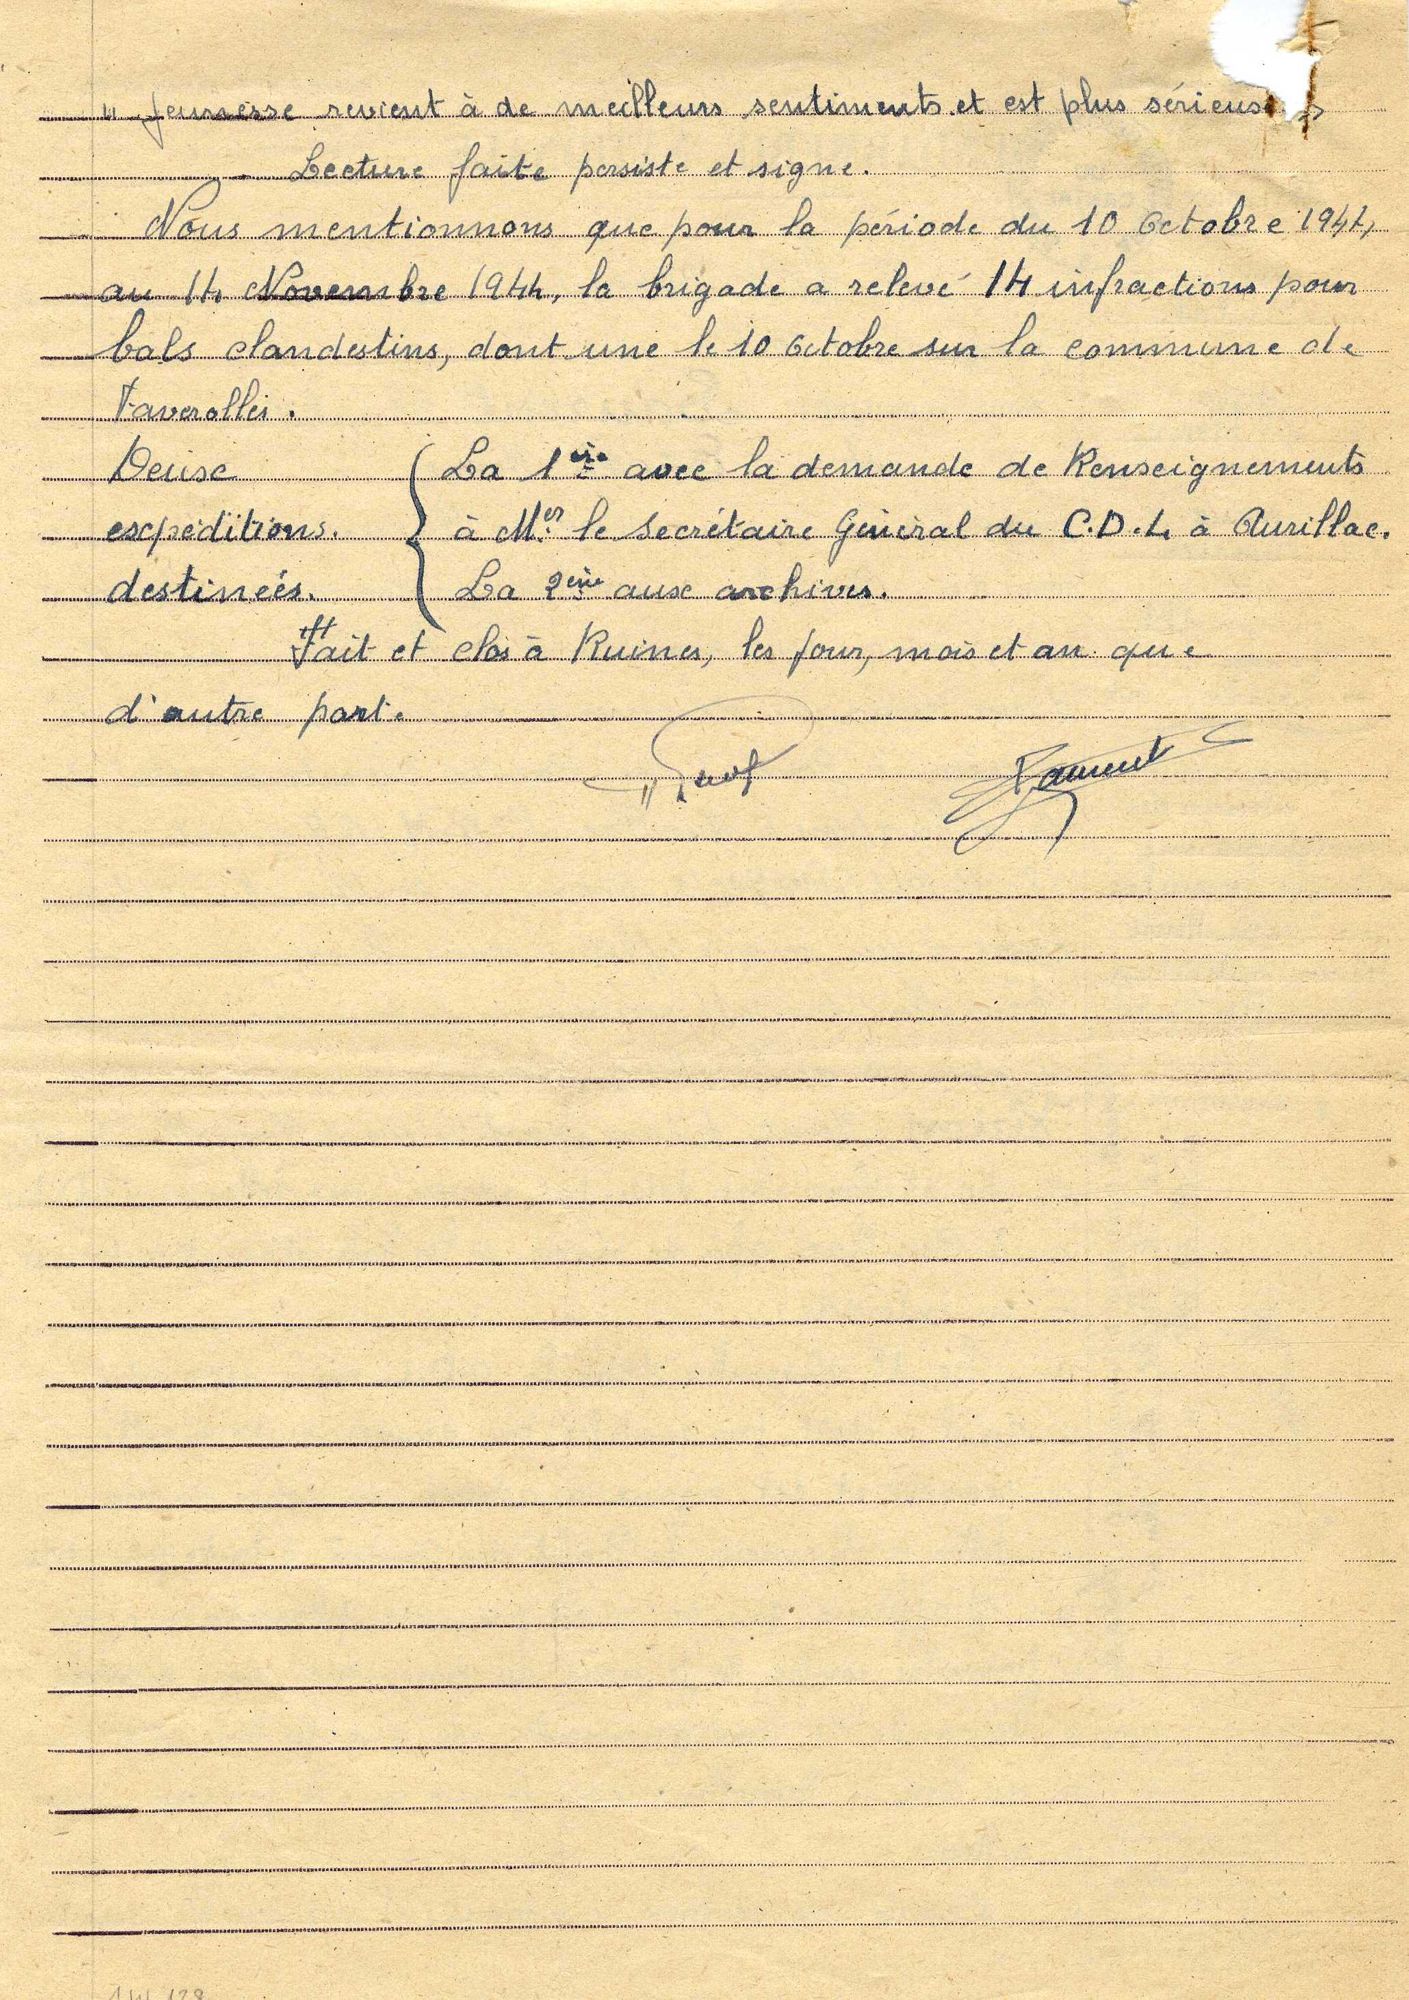 " jeunesse revient à de meilleurs sentiments et est plus sérieuse "
Lecture faite persiste et signe.
Nous mentionnons que pour la période du 10 Octobre 1944,
au 14 Novembre 1944, la brigade a relevé 14 infractions pour
bals clandestins, dont une le 10 Octobre sur la commune de
Faverolles.
Deuxe La 1ère avec la demande de Renseignements
expéditions. à Mer le Secrétaire Général du C.D.L à Aurillac.
destinées. La 2ème aux archives.
Fait et clos à Ruines, les jour, mois et an que
d'autre part.
Laurent
1W 128